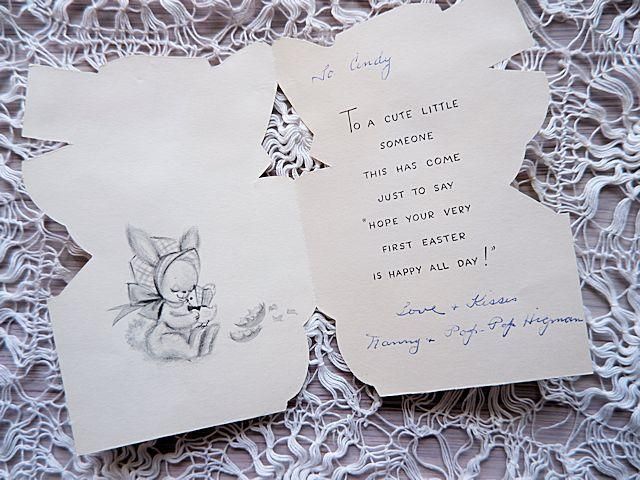 To Cindy
TO A CUTE LITTLE
SOMEONE
THIS HAS COME
JUST TO SAY
"HOPE YOUR VERY
FIRST EASTER
IS HAPPY ALL DAY!"
Love + Kisses
Nanny + Pop-Pop Higman